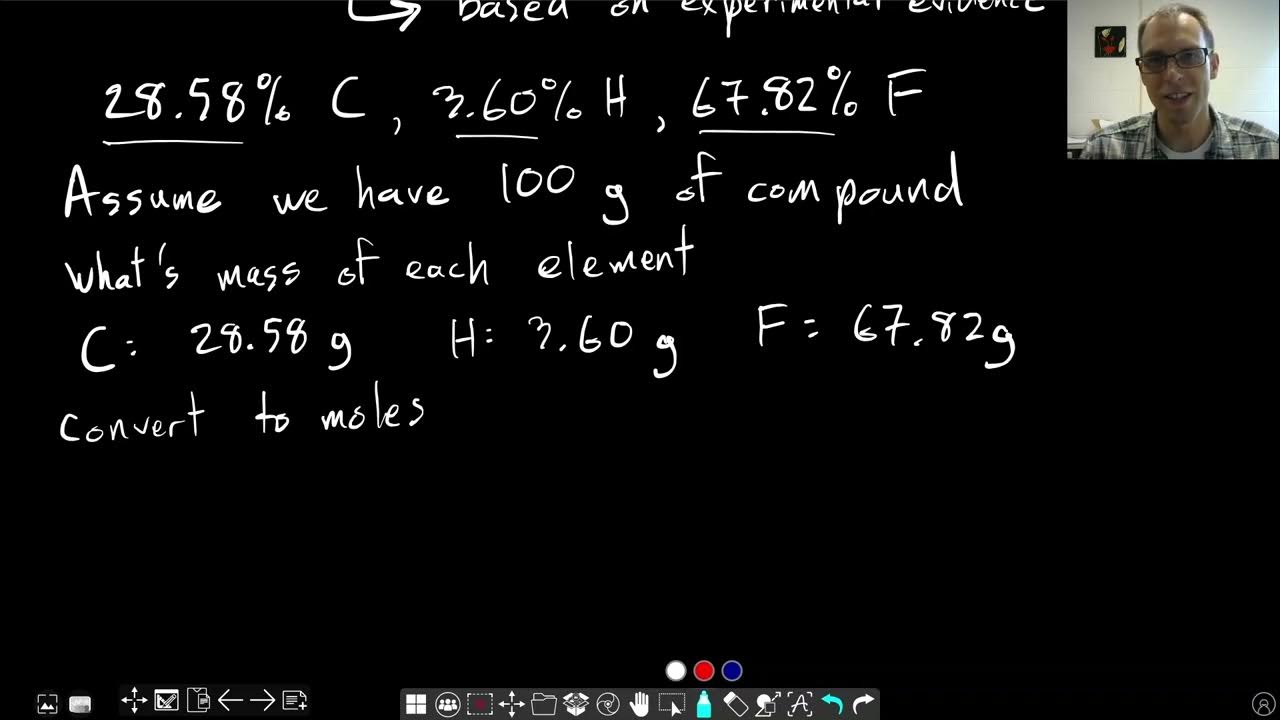 based on experimental evidence
28.58% C, 3.60% H, 67.82% F
Assume we have 100 g of compound
what's mass of each element
C: 28.58 g H: 3.60 g F = 67.82g
convert to moles